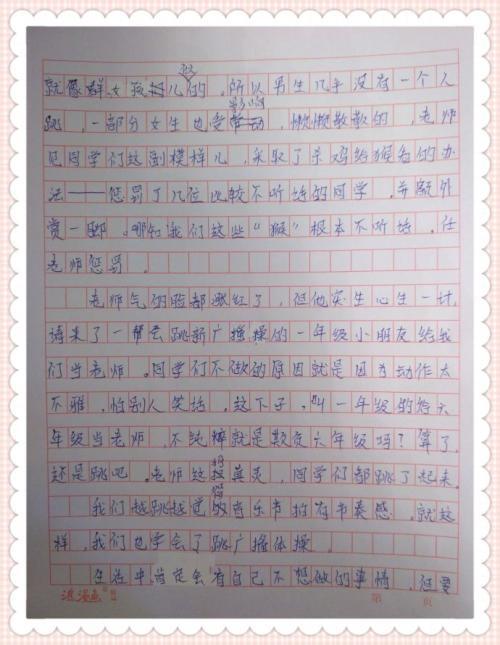 就像群女孩儿做的，所以男生几乎没有一个人
跳，一部分女生也受影响，懒懒散散的，老师
见同学们这副模样儿，采取了杀鸡给猴看的办
法——惩罚了几位比较不听话的同学，并额外
赏一脚。哪知我们这些“猴”根本不听话，任
老师惩罚。
老师气的脸都歌红了，但他突生心生一计，
请来了一帮会跳新广播操的一年级小朋友给我
们当老师。同学们不做的原因就是因为动作太
不雅，怕别人笑话，这下子，叫一年级的给六
年级当老师，不纯粹就是欺负六年级吗？算了，
还是跳吧。老师这招真灵，同学们都跳了起来。
我们越跳越觉的音乐节拍有节奏感，就这
样，我们也学会了跳广播体操。
生活中肯定会有自己不想做的事情，但要
浪漫画
第 页